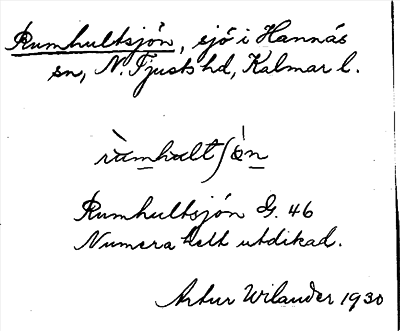 Rumhultsjön, sjö i Hannäs
sn, N. Tjusts hd, Kalmar l.
rùmhultʃə̀n
Rumhultsjön G. 46
Numera helt utdikad.
Artur Wilander 1930